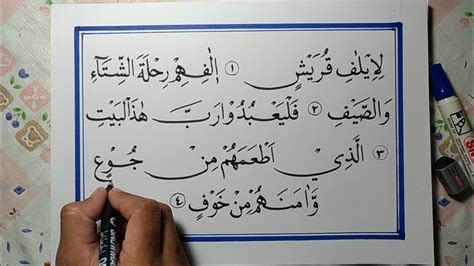 لِاِيْلٰفِ قُرَيْشٍ ١ اٖلٰفِهِمْ رِحْلَةَ الشِّتَآءِ
وَالصَّيْفِ ٢ فَلْيَعْبُدُوْا رَبَّ هٰذَا الْبَيْتِ
٣ الَّذِيْٓ اَطْعَمَهُمْ مِنْ جُوْعٍ
وَّاٰمَنَهُمْ مِنْ خَوْفٍ ٤